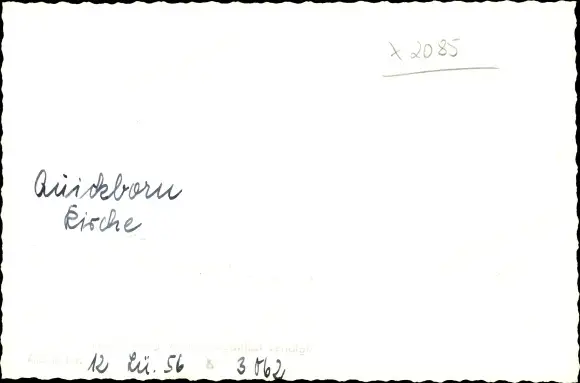 x 2085
Quickborn
Kirche
12 Lü. 56 3062